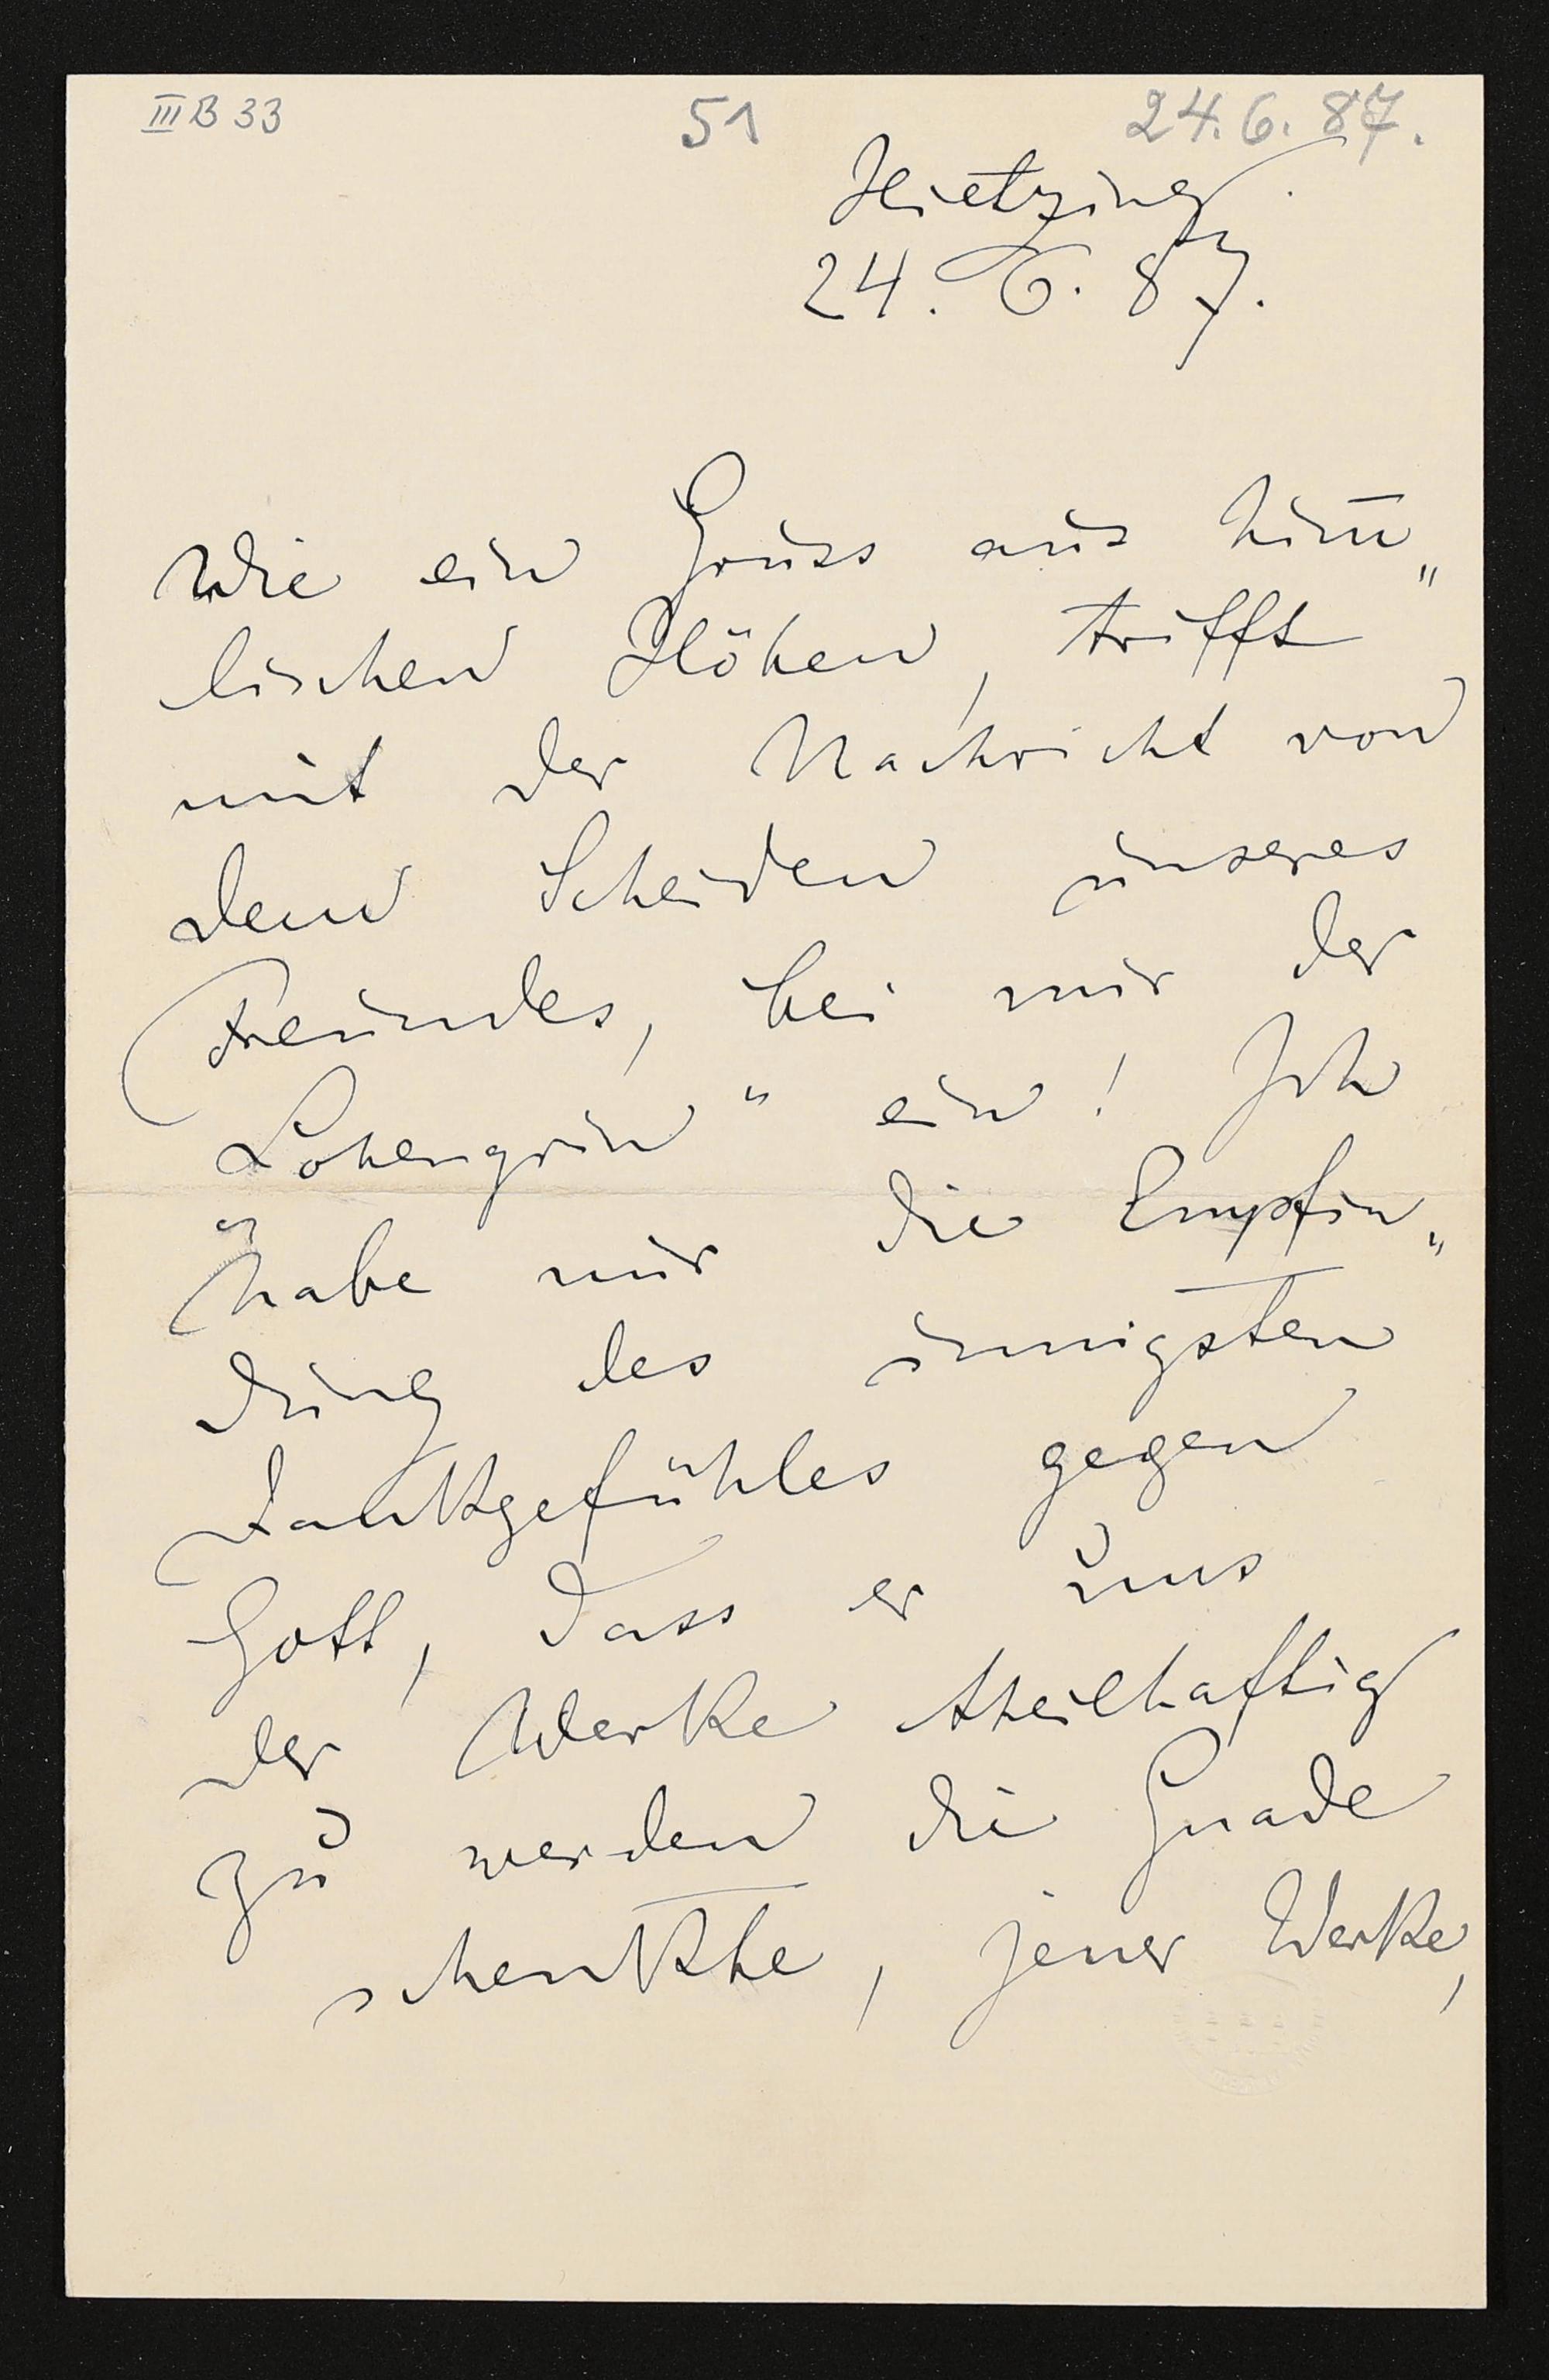 III B 33 51 24. 6. 87.
Hietzing
24. 6. 87.
Wie ein Gruss aus him̅„
lischen Höhen, trifft
mit der Nachricht von
dem Scheiden unseres
Freundes, bei mir der
„Lohengrin“ ein! Ich
habe nur die Empfin„
dung des innigsten
Dankgefühles gegen
Gott, dass er uns
der Werke theilhaftig
zu werden die Gnade
schenkte, jener Werke,